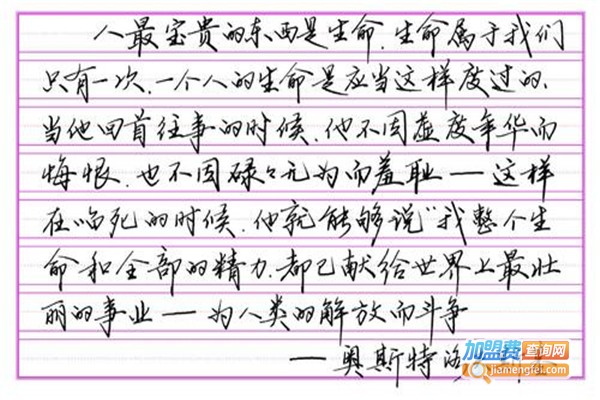 人最宝贵的东西是生命.生命属于我们
只有一次.一个人的生命是应当这样度过的.
当他回首往事的时候.他不因虚度年华而
悔恨.也不因碌々无为而羞耻—这样
在临死的时候.他就能够说"我整个生
命和全部的精力.都已献给世界上最壮
丽的事业—为人类的解放而斗争
—奥斯特洛
加盟费查询网
jiamengfei.com